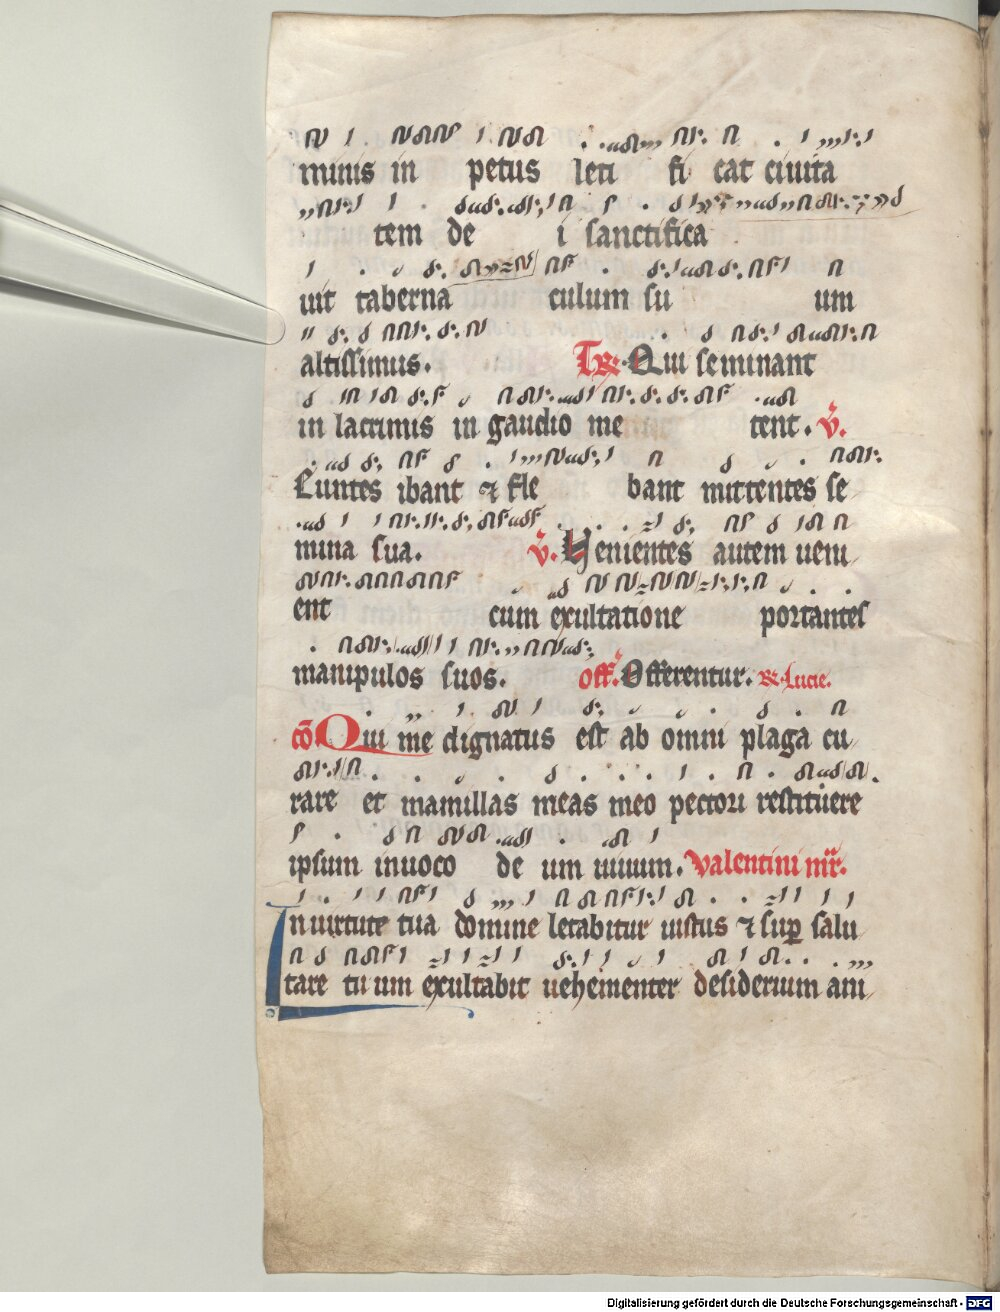 minis in petus leti fi cat ciuita
tem de i sanctifica
uit taberna culum su um
altissimus. Tr. Qui seminant
in lacrimis in gaudio me tent. v̄.
Euntes ibant ⁊ fle bant mittentes se
mina sua. v̄. Uenientes autem ueni
ent cum exultatione portantes
manipulos suos. off. Offerentur. R. Lucie.
cō Qui me dignatus est ab omni plaga cu
rare et mamillas meas meo pectori restituere
ipsum inuoco de um uiuum. Valentini mr̄.
In uirtute tua domine letabitur iustus ⁊ sup̱ salu
tare tu um exultabit uehementer desiderium ani
Digitalisierung gefördert durch die Deutsche Forschungsgemeinschaft - DFG